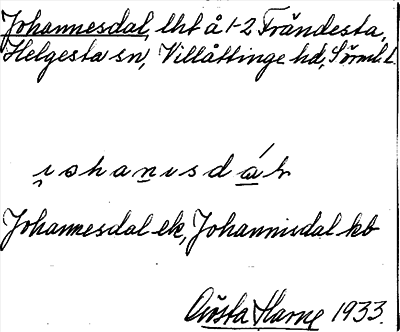 Johannesdal, lht å 1-2 Frändesta,
Helgesta sn, Villåttinge hd, Sörml. l.
Johannesdal ek, Johannisdal kb
Gösta Harne 1933.